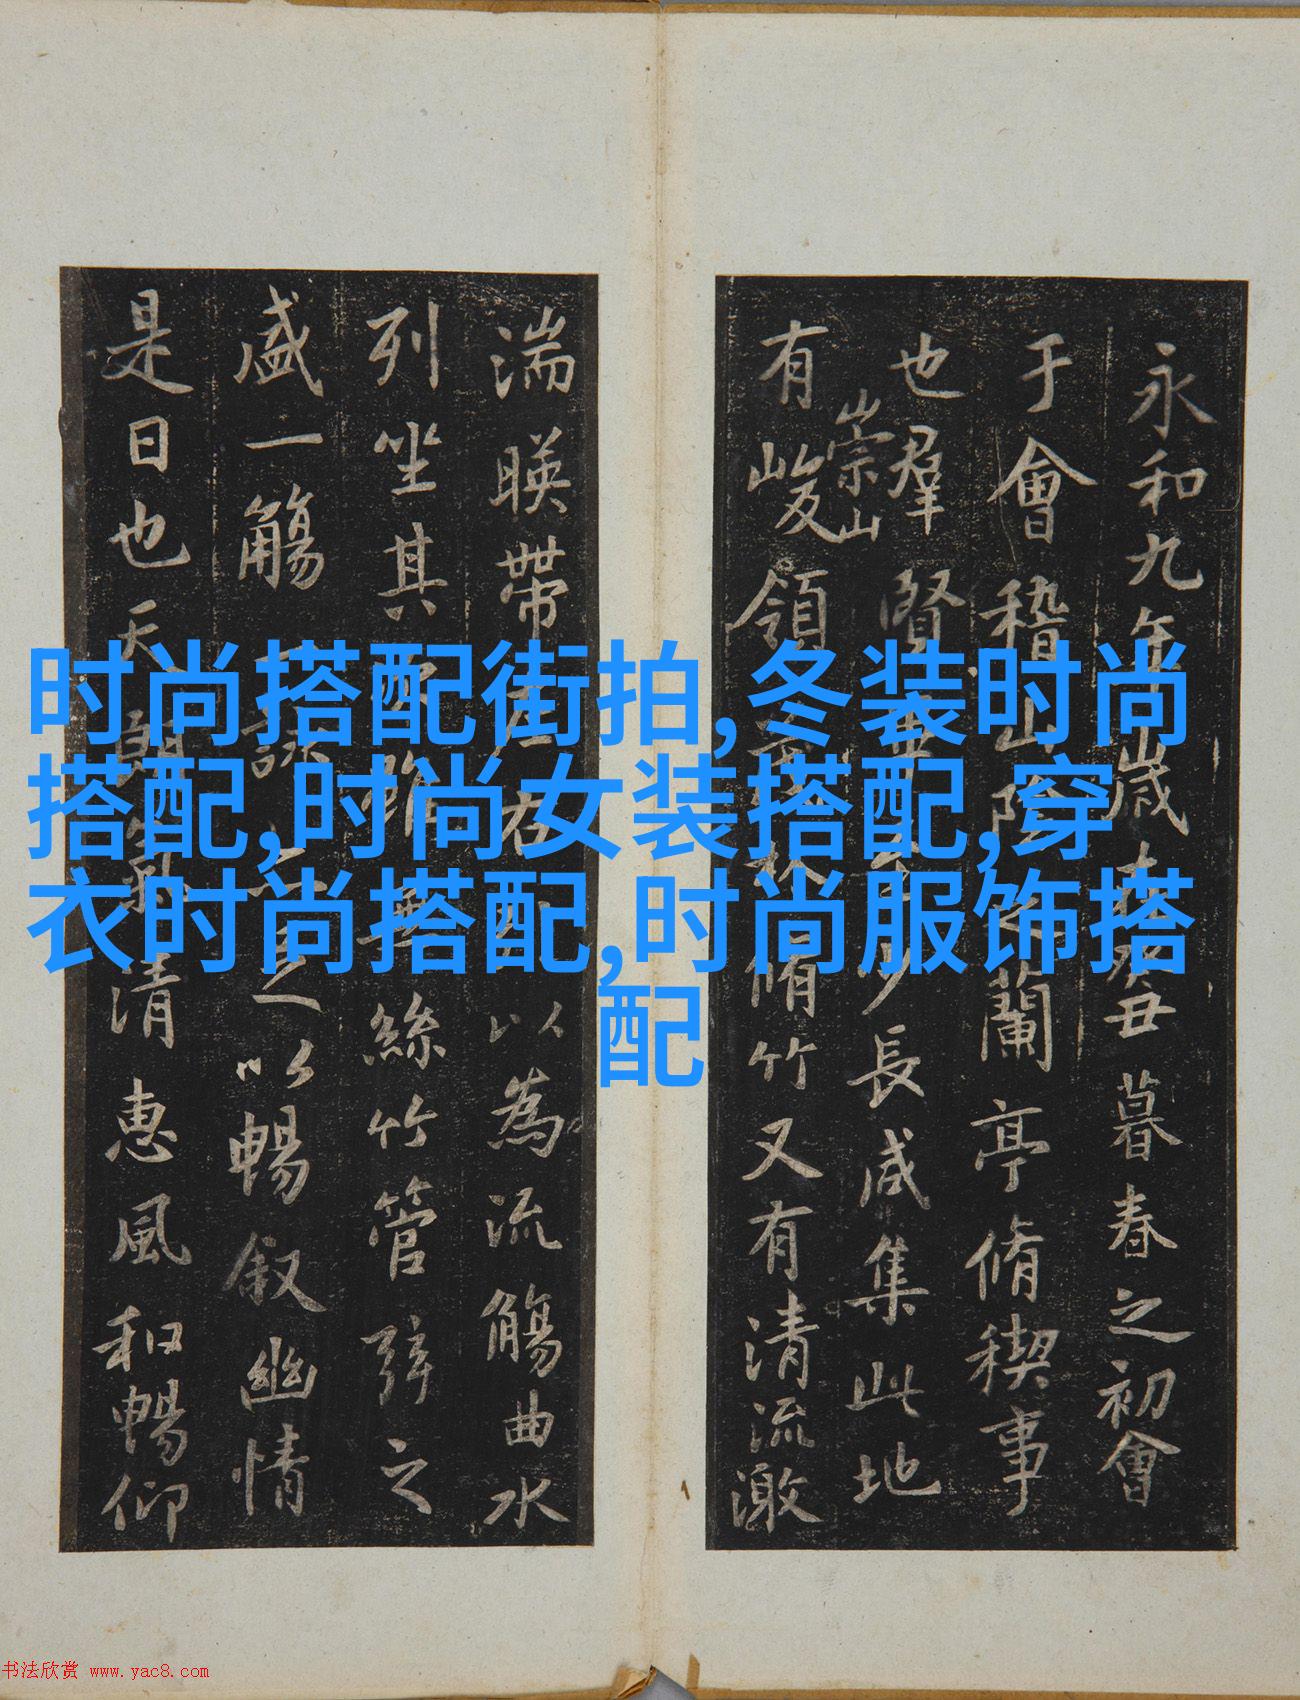 时尚搭配街拍,冬装时尚
搭配,时尚女装搭配,穿
衣时尚搭配,时尚服饰搭
配
永和九年歲在癸丑暮春之初會
于會稽山陰之蘭亭脩禊事
也羣賢畢少長咸集此地
崇山
有峻領林脩竹又有清流激
湍暎帶左右以為流觴曲水
列坐其次雖無絲竹管弦之
盛一觴一詠足以暢叙幽情
是日也天朗氣清惠風和暢仰
书法欣赏 www.yac8.com